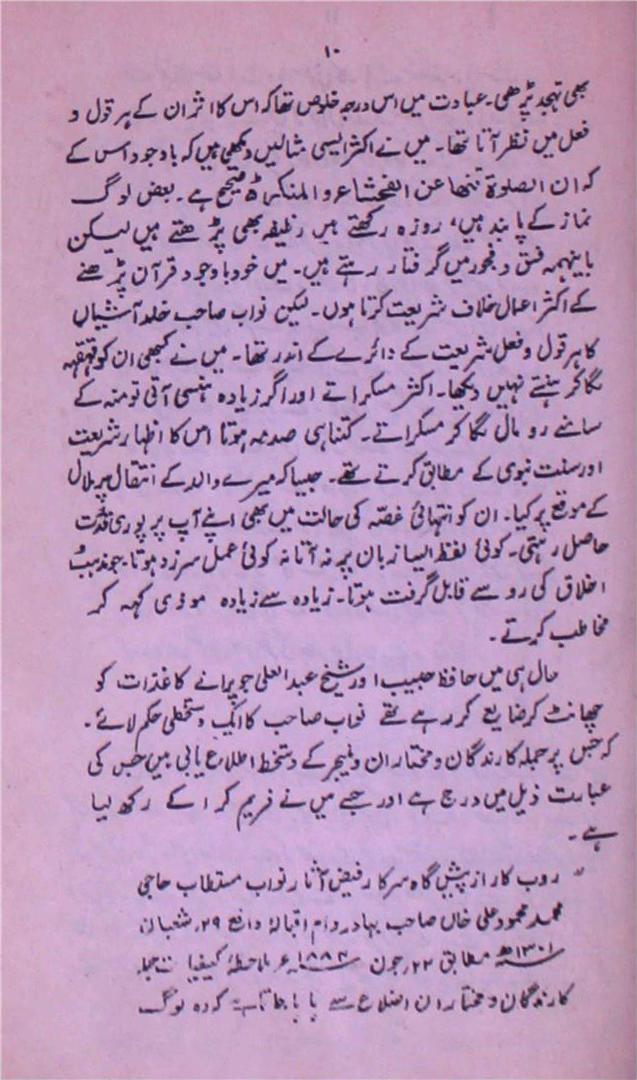 ۱۰
بھی تہجد پڑھی۔ عبادت میں اس درجہ خلوص تھا کہ اس کا اثر ان کے ہر قول و
فعل میں نظر آتا تھا۔ میں نے اکثر ایسی مثالیں دیکھی ہیں کہ باوجود اس کے
کہ ان الصلوۃ تنہا عن الفحشاء والمنکر صحیح ہے۔ بعض لوگ
نماز کے پابند ہیں، روزہ رکھتے ہیں وظیفہ بھی پڑھتے ہیں لیکن
باینہمہ فسق و فجور میں گرفتار رہتے ہیں۔ میں خود باوجود قرآن پڑھنے
کے اکثر اعمال خلاف شریعت کرتا ہوں۔ لیکن نواب صاحب خلد آشیاں
کا ہر قول و فعل شریعت کے دائرے کے اندر تھا۔ میں نے کبھی ان کو قہقہہ
لگا کر ہنستے نہیں دیکھا۔ اکثر مسکراتے اور اگر زیادہ ہنسی آتی تو منہ کے
سامنے رومال لگا کر مسکراتے۔ کتنا ہی صدمہ ہوتا اس کا اظہار شریعت
اور سنت نبوی کے مطابق کرتے تھے۔ جیسا کہ میرے والد کے انتقال پر ملال
کے موقع پر کیا۔ ان کو انتہائی غصہ کی حالت میں بھی اپنے آپ پر پوری قدرت
حاصل رہتی۔ کوئی لفظ ایسا زبان پر نہ آتا نہ کوئی عمل سرزد ہوتا۔ جو مذہب و
اخلاق کی رو سے قابل گرفت ہوتا۔ زیادہ سے زیادہ موذی کہہ کر
مخاطب کرتے۔
حال ہی میں حافظ حبیب اور شیخ عبد العلی جو پرانے کاغذات کو
چھانٹ کر ضایع کر رہے تھے نواب صاحب کا ایک دستخطی حکم لائے۔
کہ جس پر جملہ کارندگان و مختاران و منیجر کے دستخط اطلاع یابی ہیں جس کی
عبارت ذیل میں درج ہے اور جسے میں نے فریم کرا کے رکھ لیا
ہے۔
" روب کار از پیش گاہ سرکار فیض آثار نواب مستطاب حاجی
محمد محمود علی خاں صاحب بہادر دام اقبالہٗ واقع ۲۹ر شعبان
سنہ ۱۳۰۱ھ مطابق ۲۲ر جون سنہ ۱۸۸۴ء ملاحظہٗ کیفیات جملہ
کارندگان و مختاران اضلاع سے پایا جاتا ہے کہ وہ لوگ